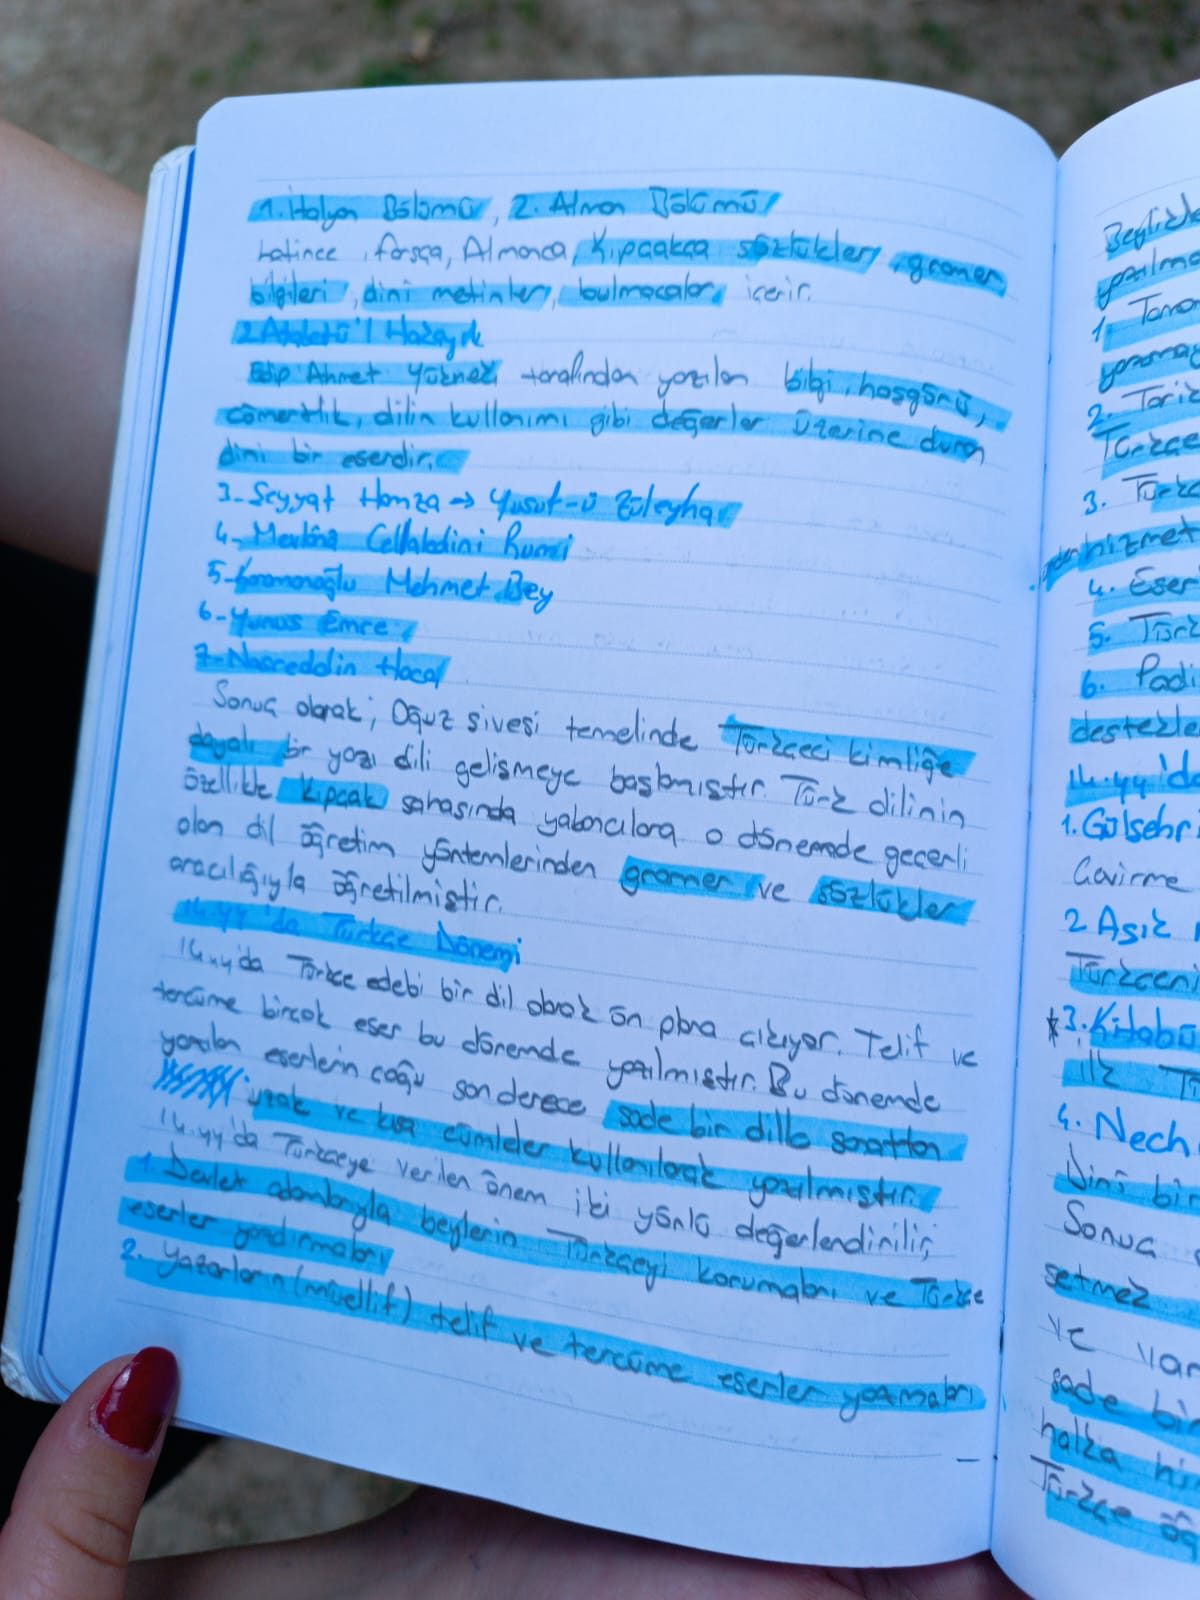 1. İtalyan Bölümü, 2. Alman Bölümü
Latince, farsça, Almanca, Kıpçakça sözlükler, gramer
bilgileri, dini metinler, bulmacalar içerir.
2 Atabetü'l Hakayık
Edip Ahmet Yükneki tarafından yazılan bilgi, hoşgörü,
cömertlik, dilin kullanımı gibi değerler üzerine duran
dini bir eserdir.
3- Seyyat Hamza → Yusuf-ü Züleyha
4- Mevlâna Cellaleddini Rumi
5- Karamanoğlu Mehmet Bey
6- Yunus Emre
7- Nasreddin Hoca
Sonuç olarak; Oğuz şivesi temelinde Türkçeci kimliğe
dayalı bir yazı dili gelişmeye başlamıştır. Türk dilinin
özellikle Kıpçak sahasında yabancılara o dönemde geçerli
olan dil öğretim yöntemlerinden gramer ve sözlükler
aracılığıyla öğretilmiştir.
14.yy'da Türkçe Dönemi
14.yy'da Türkçe edebi bir dil olarak ön plana çıkıyor. Telif ve
tercüme birçok eser bu dönemde yazılmıştır. Bu dönemde
yazılan eserlerin çoğu son derece sade bir dille sanattan
uzak ve kısa cümleler kullanılarak yazılmıştır.
14.yy'da Türkçeye verilen önem iki yönlü değerlendirilir;
1. Devlet adamlarıyla beylerin Türkçeyi korumaları ve Türkçe
eserler yazdırmaları
2. Yazarların (müellif) telif ve tercüme eserler yazmaları
1.
2.
3.
hizmet
4. Eser
5.
6. Padi
14.yy'da
1. Gülşehri
Çevirme
2 Aşık
Türkçeni
*3. Kitabü
ilk
4. Nech
Dinî bir
Sonuç
setmez
ve
sade bir
halka
Türkçe